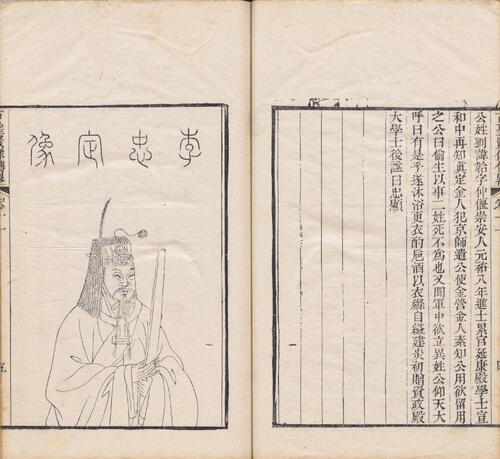 公姓劉諱韐字仲偃崇安人元祐八年進士累官延康殿學士宣
和中再知真定金人犯京師遣公使金營金人素知公用欲留用
之公曰偷生以事二姓死不為也又聞軍中欲立異姓公仰天大
呼曰有是乎遂沐浴更衣酌卮酒以衣絛自縊建炎初贈資政殿
大學士後諡曰忠顯
李忠定像
五